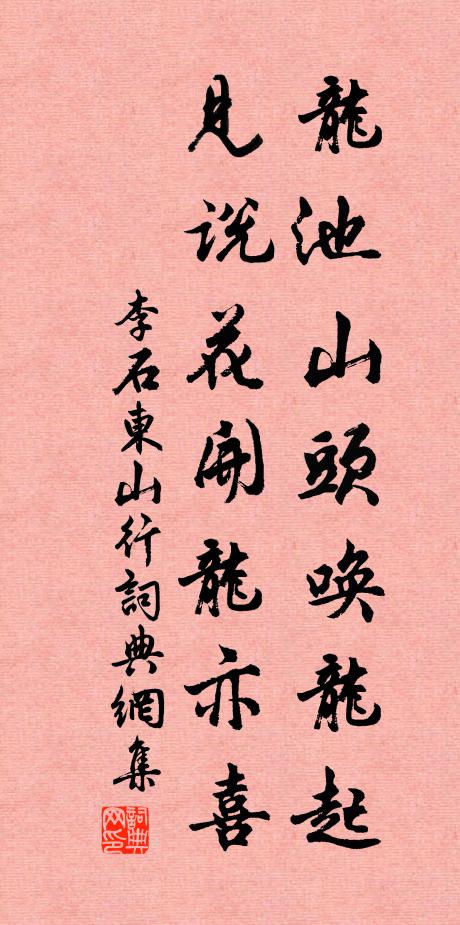 龍池山頭喚龍起
見説花開龍亦喜
李石東山行詞典網集
詞典網印